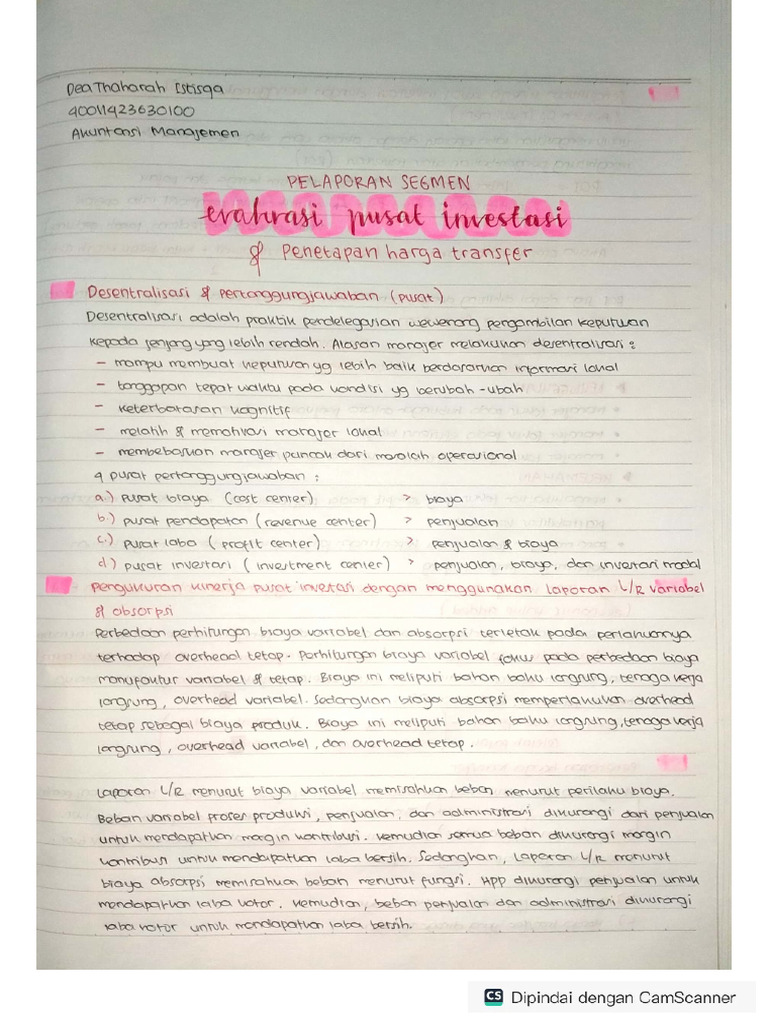 Dea Thaharah Istisqa
40011423630100
Akuntansi Manajemen
PELAPORAN SEGMEN
evaluasi pusat investasi
& Penetapan harga transfer
Desentralisasi & pertanggungjawaban (pusat)
Desentralisasi adalah praktik pendelegasian wewenang pengambilan keputusan
kepada jenjang yang lebih rendah. Alasan manajer melakukan desentralisasi :
- mampu membuat keputusan yg lebih baik berdasarkan informasi lokal
- tanggapan tepat waktu pada kondisi yg berubah-ubah
- keterbatasan kognitif
- melatih & memotivasi manajer lokal
- membebaskan manajer puncak dari masalah operasional
4 pusat pertanggungjawaban :
a.) pusat biaya (cost center) > biaya
b.) pusat pendapatan (revenue center) > penjualan
c.) pusat laba (profit center) > penjualan & biaya
d.) pusat investasi (investment center) > penjualan, biaya, dan investasi modal
Pengukuran kinerja pusat investasi dengan menggunakan laporan L/R variabel
& absorpsi
Perbedaan perhitungan biaya variabel dan absorpsi terletak pada perlakuannya
terhadap overhead tetap. Perhitungan biaya variabel fokus pada perbedaan biaya
manufaktur variabel & tetap. Biaya ini meliputi bahan baku langsung, tenaga kerja
langsung, overhead variabel. Sedangkan biaya absorpsi memperlakukan overhead
tetap sebagai biaya produk. Biaya ini meliputi bahan baku langsung, tenaga kerja
langsung, overhead variabel, dan overhead tetap.
Laporan L/R menurut biaya variabel memisahkan beban menurut perilaku biaya.
Beban variabel proses produksi, penjualan, dan administrasi dikurangi dari penjualan
untuk mendapatkan margin kontribusi. Kemudian semua beban dikurangi margin
kontribusi untuk mendapatkan laba bersih. Sedangkan, laporan L/R menurut
biaya absorpsi memisahkan beban menurut fungsi. HPP dikurangi penjualan untuk
mendapatkan laba kotor. Kemudian, beban penjualan dan administrasi dikurangi
laba kotor untuk mendapatkan laba bersih.
CS Dipindai dengan CamScanner